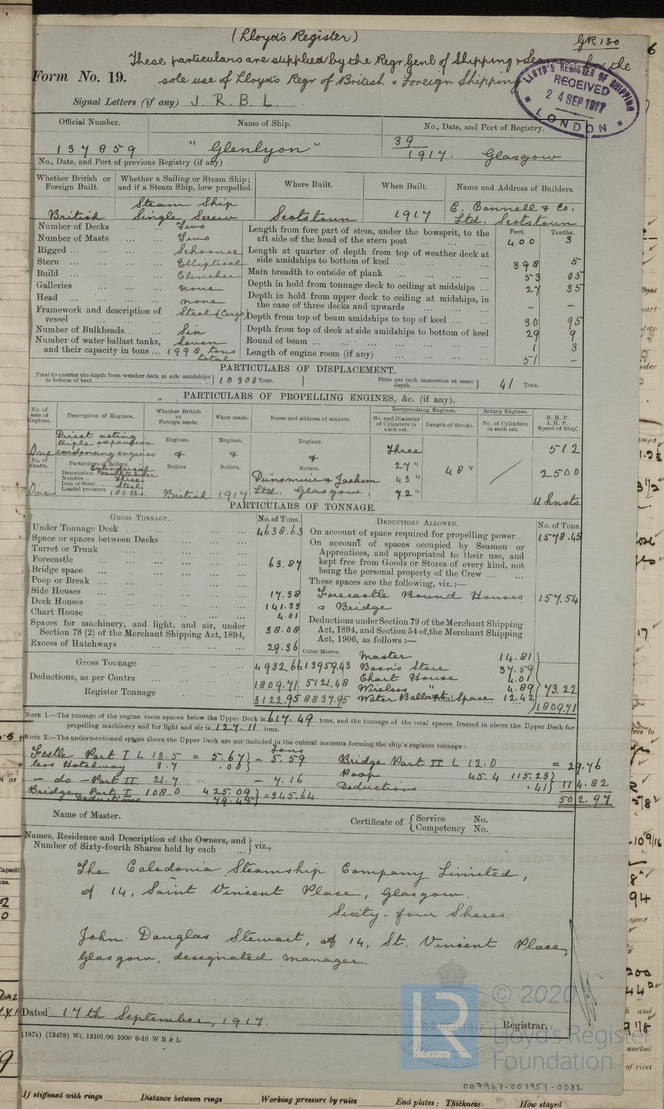 (Lloyd's Register)
GR 130
These particulars are supplied by the Regr Genl of Shipping & Seamen for the
Form No. 19.
sole use of Lloyds Regr of British & Foreign Shipping
LLOYD'S REGISTER OF SHIPPING
RECEIVED
24 SEP 1917
LONDON
Signal Letters (if any) J. R. B. L.
Official Number. Name of Ship. No., Date, and Port of Registry.
137859 "Glenlyon" 39/1917. Glasgow
No., Date, and Port of previous Registry (if any)
Whether British or Foreign Built. Whether a Sailing or Steam Ship; and if a Steam Ship, how propelled. Where Built. When Built. Name and Address of Builders.
British Steam Ship Single Screw Scotstoun 1917 C. Connell & Co. Ltd. Scotstoun
Number of Decks Two
Number of Masts Two
Rigged Schooner
Stern Elliptical
Build Clincher
Galleries none
Head none
Framework and description of vessel Steel (Cargo)
Number of Bulkheads Six
Number of water ballast tanks, and their capacity in tons Seven 1998 tons total
Feet. Tenths.
Length from fore part of stem, under the bowsprit, to the aft side of the head of the stern post 400 3
Length at quarter of depth from top of weather deck at side amidships to bottom of keel 398 5
Main breadth to outside of plank 53 05
Depth in hold from tonnage deck to ceiling at midships 27 35
Depth in hold from upper deck to ceiling at midships, in the case of three decks and upwards - -
Depth from top of beam amidships to top of keel 30 95
Depth from top of deck at side amidships to bottom of keel 29 9
Round of beam 1 3
Length of engine room (if any) 51 -
PARTICULARS OF DISPLACEMENT.
Total to quarter the depth from weather deck at side amidships to bottom of keel 10300 Tons.
Ditto per inch immersion at same depth 41 Tons.
PARTICULARS OF PROPELLING ENGINES, &c. (if any).
No. of sets of Engines. Description of Engines. Whether British or Foreign made. When made. Name and address of makers. Reciprocating Engines. Rotary Engines. N. H. P. I. H. P. Speed of Ship.
No. and Diameter of Cylinders in each set. Length of Stroke. No. of Cylinders in each set.
One Direct acting triple expansion condensing engines
Engines. Engines. Engines.
& & &
Boilers Boilers Boilers.
No. of Shafts. Particulars of Boilers.
Description
Number Three
Iron or Steel Steel
Loaded pressure 180 lbs.
One British 1917 Dunsmuir & Jackson Ltd. Glasgow.
Three 27" 43" 72" 48" 512 2500 11 knots
PARTICULARS OF TONNAGE.
GROSS TONNAGE. No. of Tons. DEDUCTIONS ALLOWED. No. of Tons.
Under Tonnage Deck 4638.63
Space or spaces between Decks
Turret or Trunk
Forecastle 63.87
Bridge space
Poop or Break
Side Houses 17.38
Deck Houses 141.33
Chart House 4.01
Spaces for machinery, and light, and air, under Section 78 (2) of the Merchant Shipping Act, 1894, 38.08
Excess of Hatchways 29.36
Cubic Metres.
Gross Tonnage 4932.66 13959.43
Deductions, as per Contra 1809.71 5121.48
Register Tonnage 3122.95 8837.95
On account of space required for propelling power 1578.45
On account of spaces occupied by Seamen or Apprentices, and appropriated to their use, and kept free from Goods or Stores of every kind, not being the personal property of the Crew
These spaces are the following, viz.:—
Forecastle Round Houses & Bridge 157.54
Deductions under Section 79 of the Merchant Shipping Act, 1894, and Section 54 of the Merchant Shipping Act, 1906, as follows:—
Master 14.81
Bosn's Store 37.59
Chart House 4.01
Wireless " 4.89
Water Ballast Space 12.42
73.22
Total 1809.71
NOTE 1.—The tonnage of the engine room spaces below the Upper Deck is 617.49 tons, and the tonnage of the total spaces framed in above the Upper Deck for
propelling machinery and for light and air is 127.11 tons.
NOTE 2.—The undermentioned spaces above the Upper Deck are not included in the cubical contents forming the ship's register tonnage:
Tons
Fcstle Part I L 13.5 = 5.67 = 5.59 Bridge Part II L 12.0 = 29.76
less Hatchway 3.7 .08
- do - Part II 21.7 - 7.16 Poop 45.4 115.23 114.82
Deductions .41
Bridge Part I 108.0 425.09 = 345.64
Deductions 79.45
502.97
Name of Master. Certificate of Service No. Competency No.
Names, Residence and Description of the Owners, and Number of Sixty-fourth Shares held by each viz.,
The Caledonia Steamship Company Limited,
of 14, Saint Vincent Place, Glasgow.
Sixty-four Shares
John Douglas Stewart, of 14, St. Vincent Place,
Glasgow, designated manager.
Dated 17th September, 1917.
Registrar.
(187L) (73478) Wt. 12101/96 1000 6-16 W B & L
LR
© 2020
Lloyd's Register
Foundation
007947-007957-0082
If stiffened with rings Distance between rings Working pressure by rules End plates: Thickness How stayed